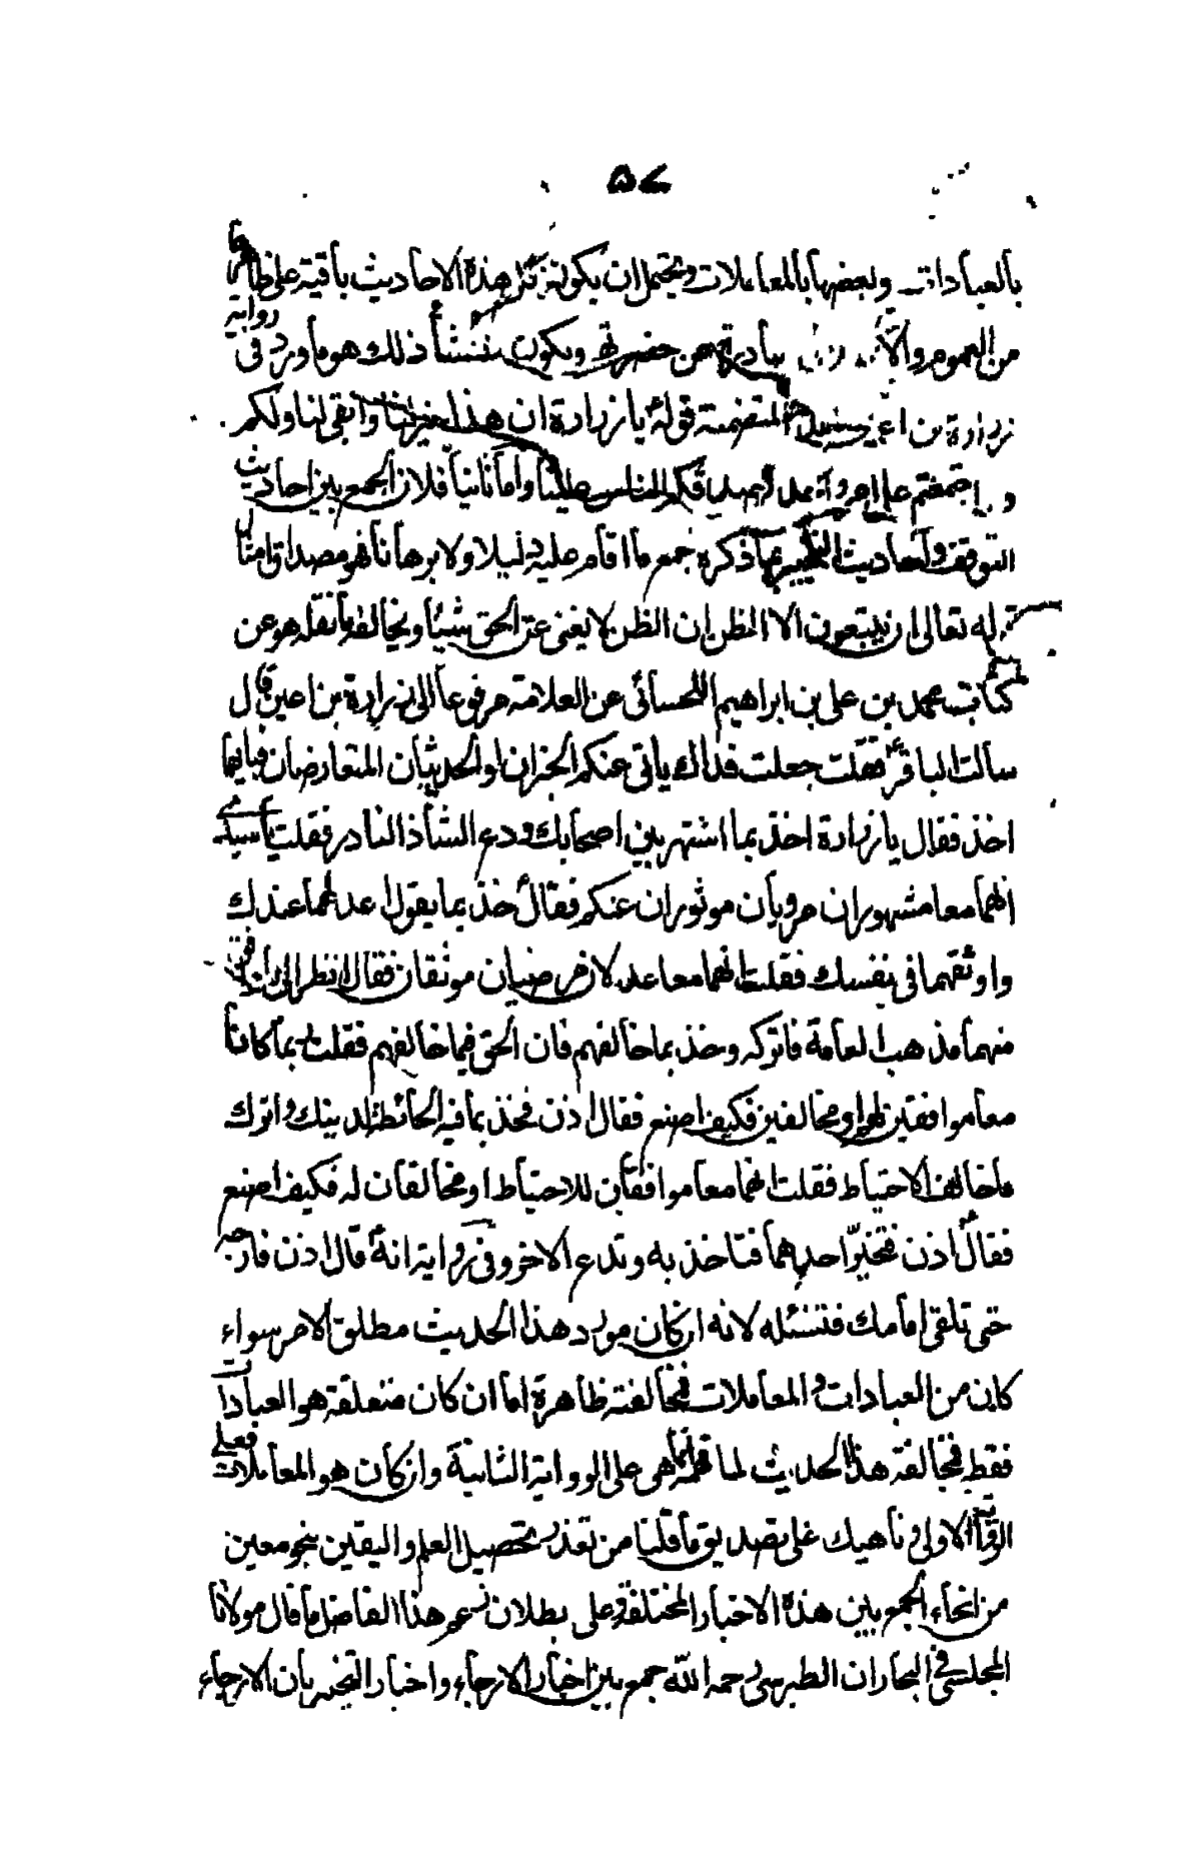 ٥٧
بالعبادات وبعضها بالمعاملات ويحتمل ان يكون هذه الاحاديث باقية على ظاهرها
من العموم ويكون منشأ ذلك هو ما ورد فى رواية
زرارة بن اعين المتضمنة قوله يا زرارة ان هذا خير لنا وابقى لنا ولكم
و اجتمعتم على امر واما ثانيا فلان الجمع بين احاديث
التوقف واحاديث التخيير بما ذكره جمع ما اقام عليه دليلا ولا برهانا فهو مصداق امثال
قوله تعالى ان يتبعون الا الظن ان الظن لا يغنى عن الحق شيئا ويخالفه ما نقله هو عن
كتاب محمد بن على بن ابراهيم اللحسائى عن العلامة مرفوعا الى زرارة بن اعين قال
سالت الباقرؑ فقلت جعلت فداك ياتى عنكم الخبران او الحديثان المتعارضان فبايهما
اخذ فقال يا زرارة اخذ بما اشتهر بين اصحابك ودع الشاذ النادر فقلت يا سيدى
انهما معا مشهوران مرويان موثوران عنكم فقالؑ خذ بما يقول اعدلهما عندك
واوثقهما فى نفسك فقلت انهما معا عدلان مرضيان موثقان فقال انظر الى ما وافق
منهما مذهب العامة فاتركه وخذ بما خالفهم فان الحق فيما خالفهم فقلت ربما كانا
معا موافقين لهم او مخالفين فكيف اصنع فقال اذن فخذ بما فيه الحائطة لدينك واترك
ما خالف الاحتياط فقلت انهما معا موافقان للاحتياط او مخالفان له فكيف اصنع
فقالؑ اذن فتخير احدهما فتاخذ به وتدع الاخر وفى رواية انهؑ قال اذن فارجه
حتى تلقى امامك فتسئله لانه ان كان مورد هذا الحديث مطلق الامر سواء
كان من العبادات والمعاملات فمخالفته ظاهرة اما ان كان متعلقه هو العبادات
فقط فمخالفة هذا الحديث لما هى على الرواية الثانية وان كان هو المعاملات فعلى
الرواية الاولى وناهيك على تصديق ما قلنا من تعذر تحصيل العلم واليقين بنحو معين
من انحاء الجمع بين هذه الاخبار المختلفة وعلى بطلان زعم هذا الفاضل ما قال مولانا
المجلسى فى البحار ان الطبرسى رحمه الله جمع بين اخبار الارجاء واخبار التخيير بان الارجاء